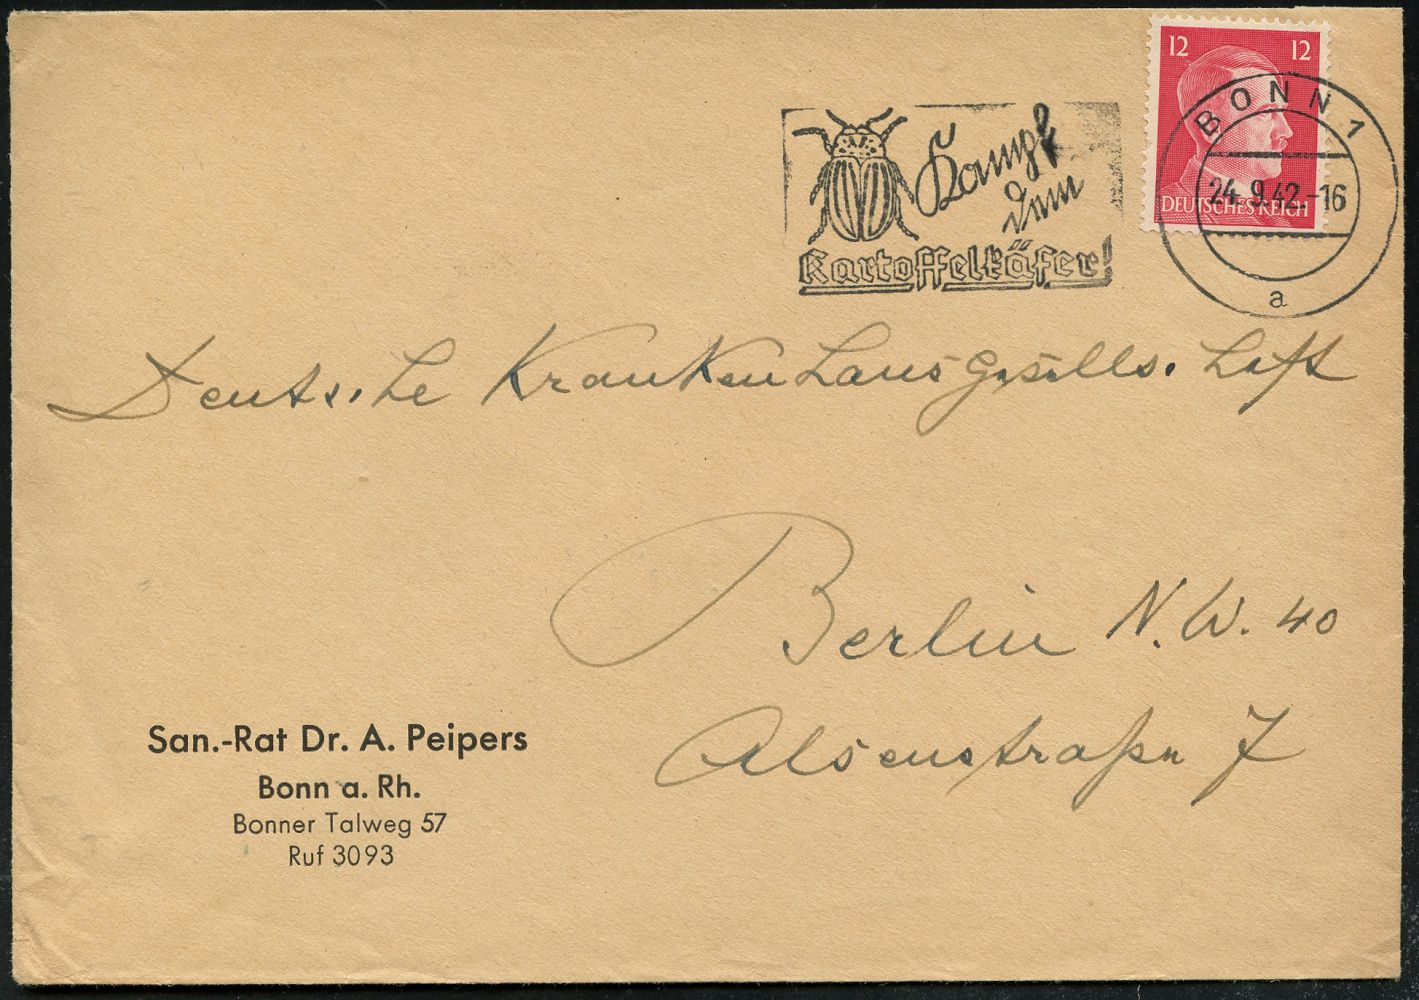 12 12
DEUTSCHES REICH
BONN 1
24.9.42.-16
a
Kampf
dem
Kartoffelkäfer!
Deutsche Krankenhausgesellschaft
Berlin N.W. 40
Alsenstraße 7
San.-Rat Dr. A. Peipers
Bonn a. Rh.
Bonner Talweg 57
Ruf 3093